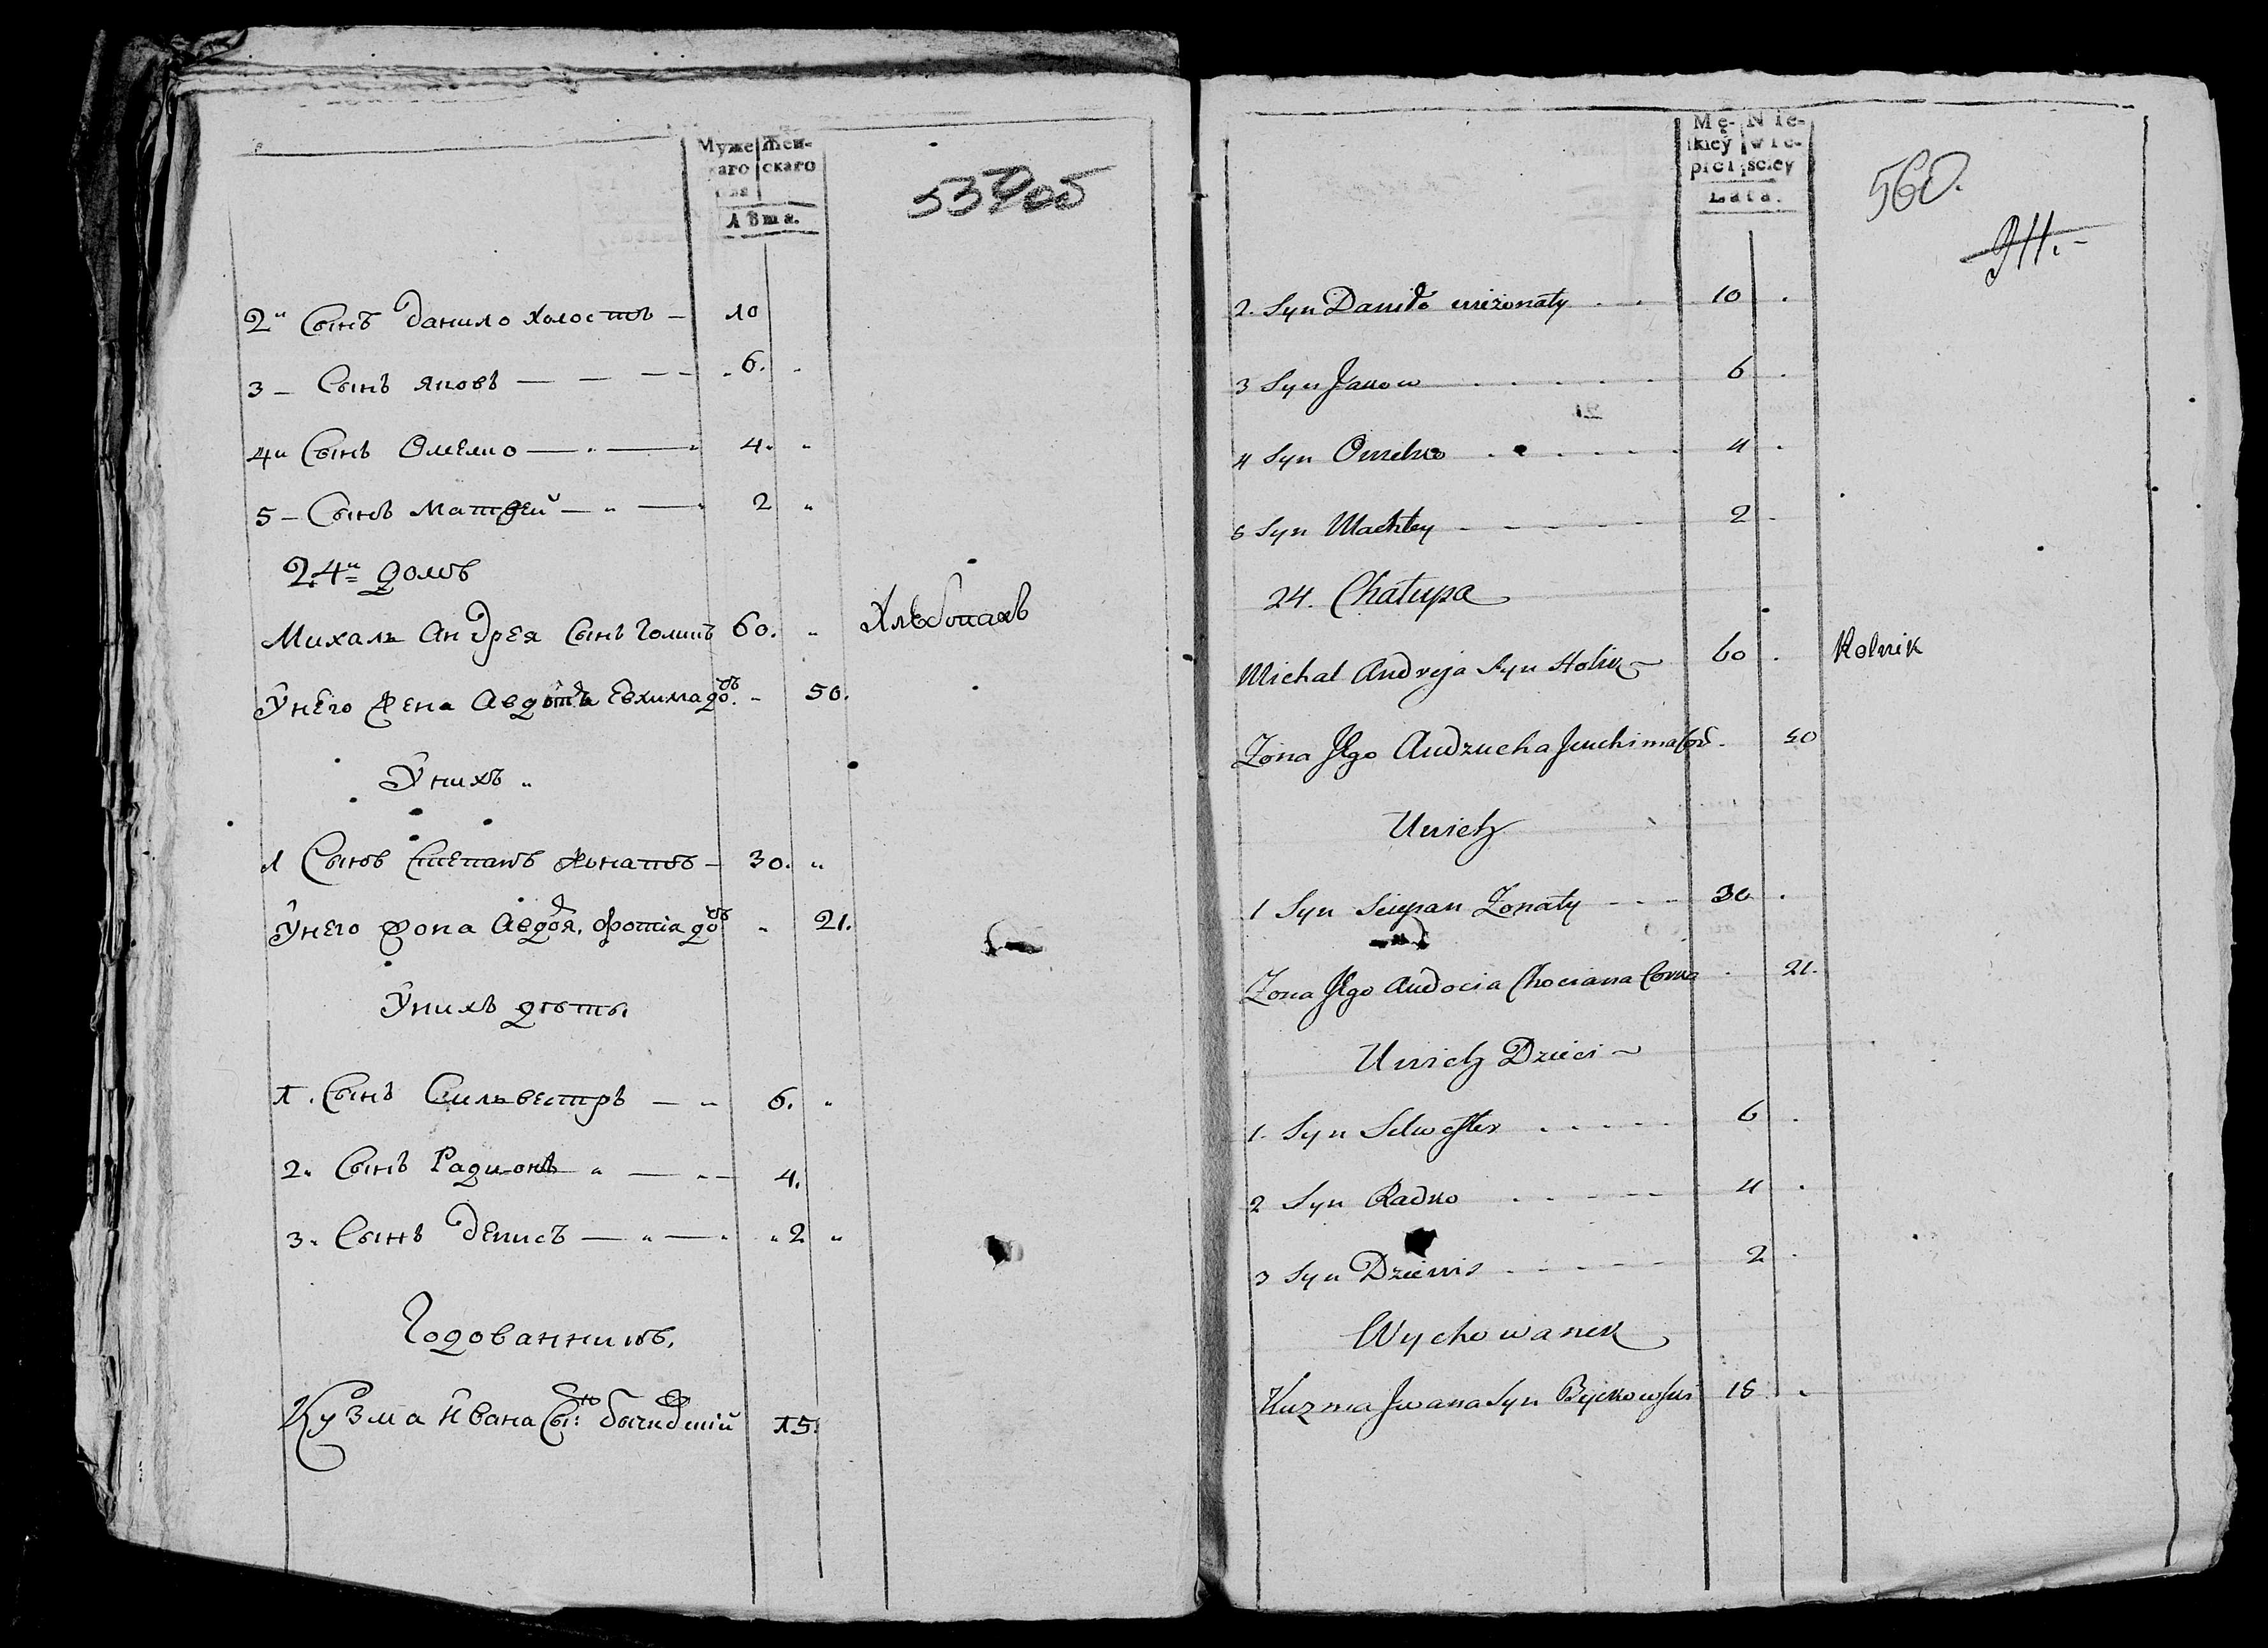 Муже Жен-
каго скаго
пола
Лѣта.
2. Сынъ Данило холостъ — 10
3 — Сынъ Яковъ — — — 6.
4 Сынъ Омелко — 4.
5 — Сынъ Матфей — 2
24 домъ
Михалъ Андрея Сынъ Голикъ 60. Хлѣбопахъ
У него Жена Авдотъя Евхима до. 50.
У нихъ
1 Сынъ Степанъ Жонатъ — 30.
У него жона Авдотя, Фотіа до 21.
У нихъ дѣты
1. Сынъ Сильвестръ — 6.
2. Сынъ Радионъ — 4.
3. Сынъ Денисъ — 2
Годованникъ.
Кузма Ивана Сы: 15.
Mę- Nie-
skiey wie-
płci sciey
Lata.
560.
2. Syn Daniło nieżonaty 10
3 Syn Jakow 6
4 Syn Omelko 4
5 Syn Machtey 2
24. Chałupa
Michal Andreja Syn Holik 60 Rolnik
Żona Jego Audzucha Juchima Cor. 50
U nich
1 Syn Sciepan Żonaty 30
Żona Jego Audocia Chociana Corka 21.
U nich Dzieci
1. Syn Selwester 6
2 Syn Radko 4
3 Syn Dzienis 2
Wychowanek
Kuzma Jwana Syn Byckowski 15